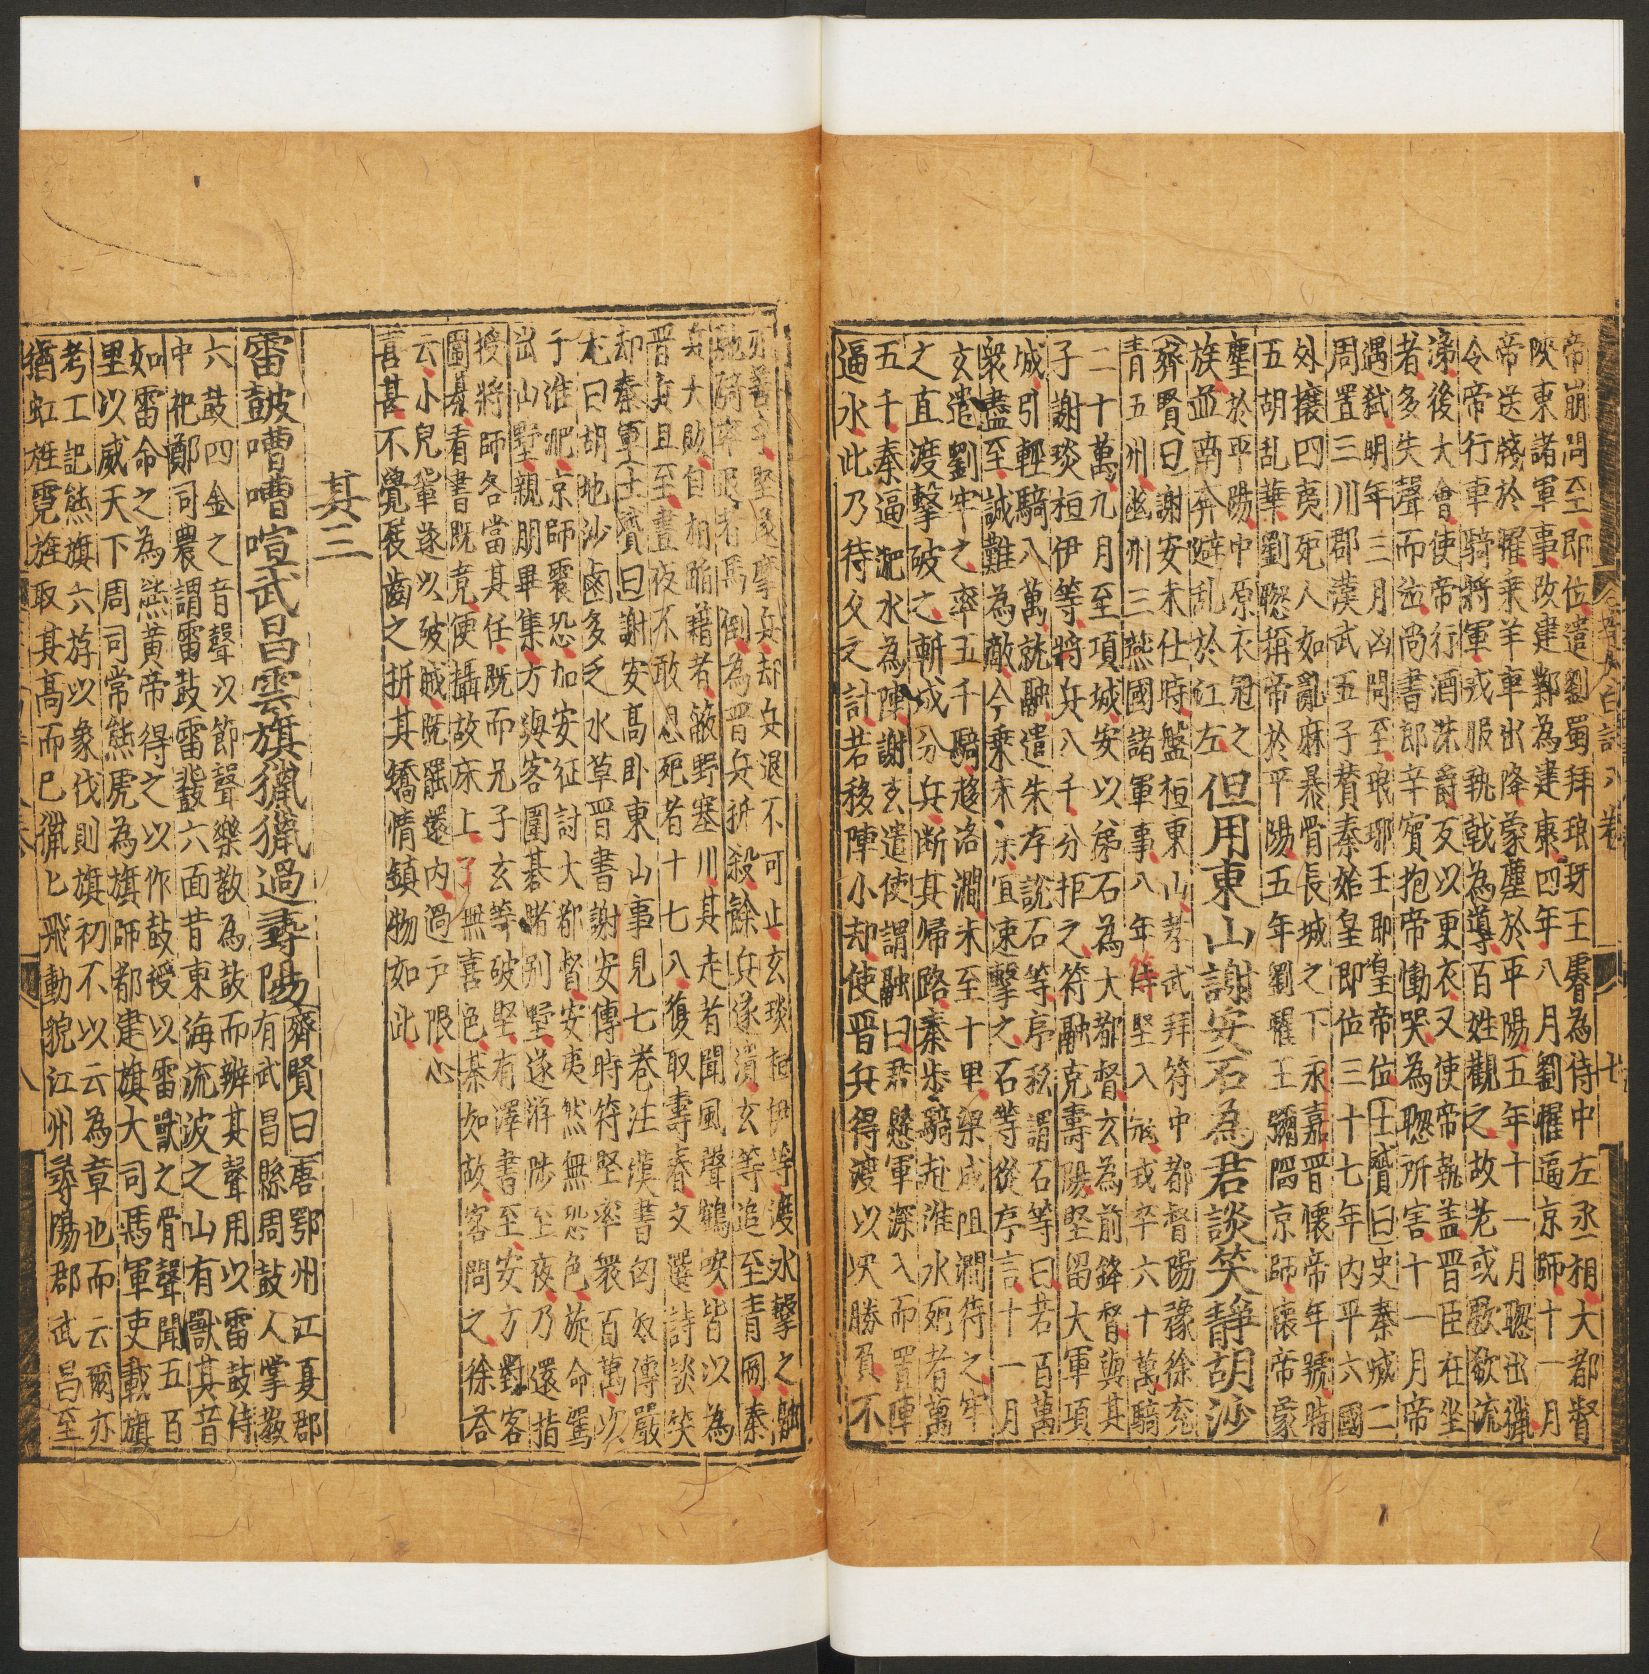 帝崩問至即位遣劉蜀拜琅琊王睿為侍中左丞相大都督
陝東諸軍事改建鄴為建康四年八月劉愄逼京師十一月
帝送牋於曜乗羊車出降蒙塵於平陽五年十一月聦出獵
令帝行車騎將軍戎服執戟為導百姓觀之故老或歔欷流
涕後大會使帝行酒洗爵反以更衣又使帝執盖晋臣在坐
者多失聲而泣尚書郎辛賔抱帝慟哭為聦所害十一月帝
遇弑明年三月凶問至琅琊王即皇帝位士贇曰史秦滅二
周置三川郡漢武五子賛秦始皇即位三十七年内平六國
外攘四夷死人如亂麻暴骨長城之下永嘉晋懷帝年號時
五胡乱華劉聦稱帝於平陽五年劉曜王彌陷京師懷帝蒙
塵於平陽中原衣冠之
族並南奔避乱於江左
但用東山謝安石為君談笑静胡沙
齊賢曰謝安未仕時盤桓東山孝武拜符中都督陽豫徐兖
青五州幽州三燕國諸軍事八年苻堅入㓂戎卒六十萬騎
二十萬九月至項城安以弟石為大都督玄為前鋒督與其
子謝琰桓伊等將兵八千分拒之符融克壽陽堅留大軍項
城引輕騎八萬就融遣朱存説石等序私謂石等曰若百萬
衆盡至誠難為敵今乗未宜速擊之石等從序言十一月
玄遣劉牢之率五千騎趍洛澗未至十里梁成阻澗待之牢
之直渡擊破之斬成分兵断其歸路秦步騎赴淮水死者萬
五千秦逼淝水為陣謝玄遣使謂融曰君懸軍深入而置陣
逼水此乃待久之計若移陣小却使晋兵得渡以决勝負不
亦善乎堅遂麾兵却兵退不可止玄琰桓伊等渡水擊之融
馳騎率退者馬倒為晋兵所殺餘兵遂潰玄等追至青岡秦
兵大敗自相蹈藉者蔽野塞川其走者聞風聲鶴唳皆以為
晋兵且至晝夜不敢息死者十七八復取壽春文選詩談笑
却秦軍士贇曰謝安高卧東山事見七卷注漢書匈奴傳嚴
尤曰胡地沙鹵多乏水草晋書謝安傳時符堅率衆百萬次
于淮淝京師震恐加安征討大都督安夷然無恐色旋命駕
出山墅親朋畢集方與客圍碁賭别墅遂游陟至夜乃還指
授將師各當其任既而兄子玄等破堅有澤書至安方對客
圍碁看書既竟便攝放床上了無喜色碁如故客問之徐荅
云小兒輩遂以破賊既罷還内過户限心
喜甚不覺屐齒之折其矯情鎮物如此
其三
雷鼓嘈嘈喧武昌雲旗獵獵過尋陽
齊賢曰唐鄂州江夏郡
有武昌縣周鼓人掌教
六鼓四金之音聲以節聲樂教為鼓而辨其聲用以雷鼓侍
中祀鄭司農謂雷鼓雷鼗六面昔東海流波之山有獸其音
如雷命之為夔黄帝得之以作鼓授以雷獸之骨聲聞五百
里以威天下周司常熊虎為旗師都建旗大司馬軍吏載旗
考工記熊旗六斿以象伐則旗初不以云為章也而云爾亦
猶虹旌霓旌取其高而已獵匕飛動貌江州尋陽郡武昌至